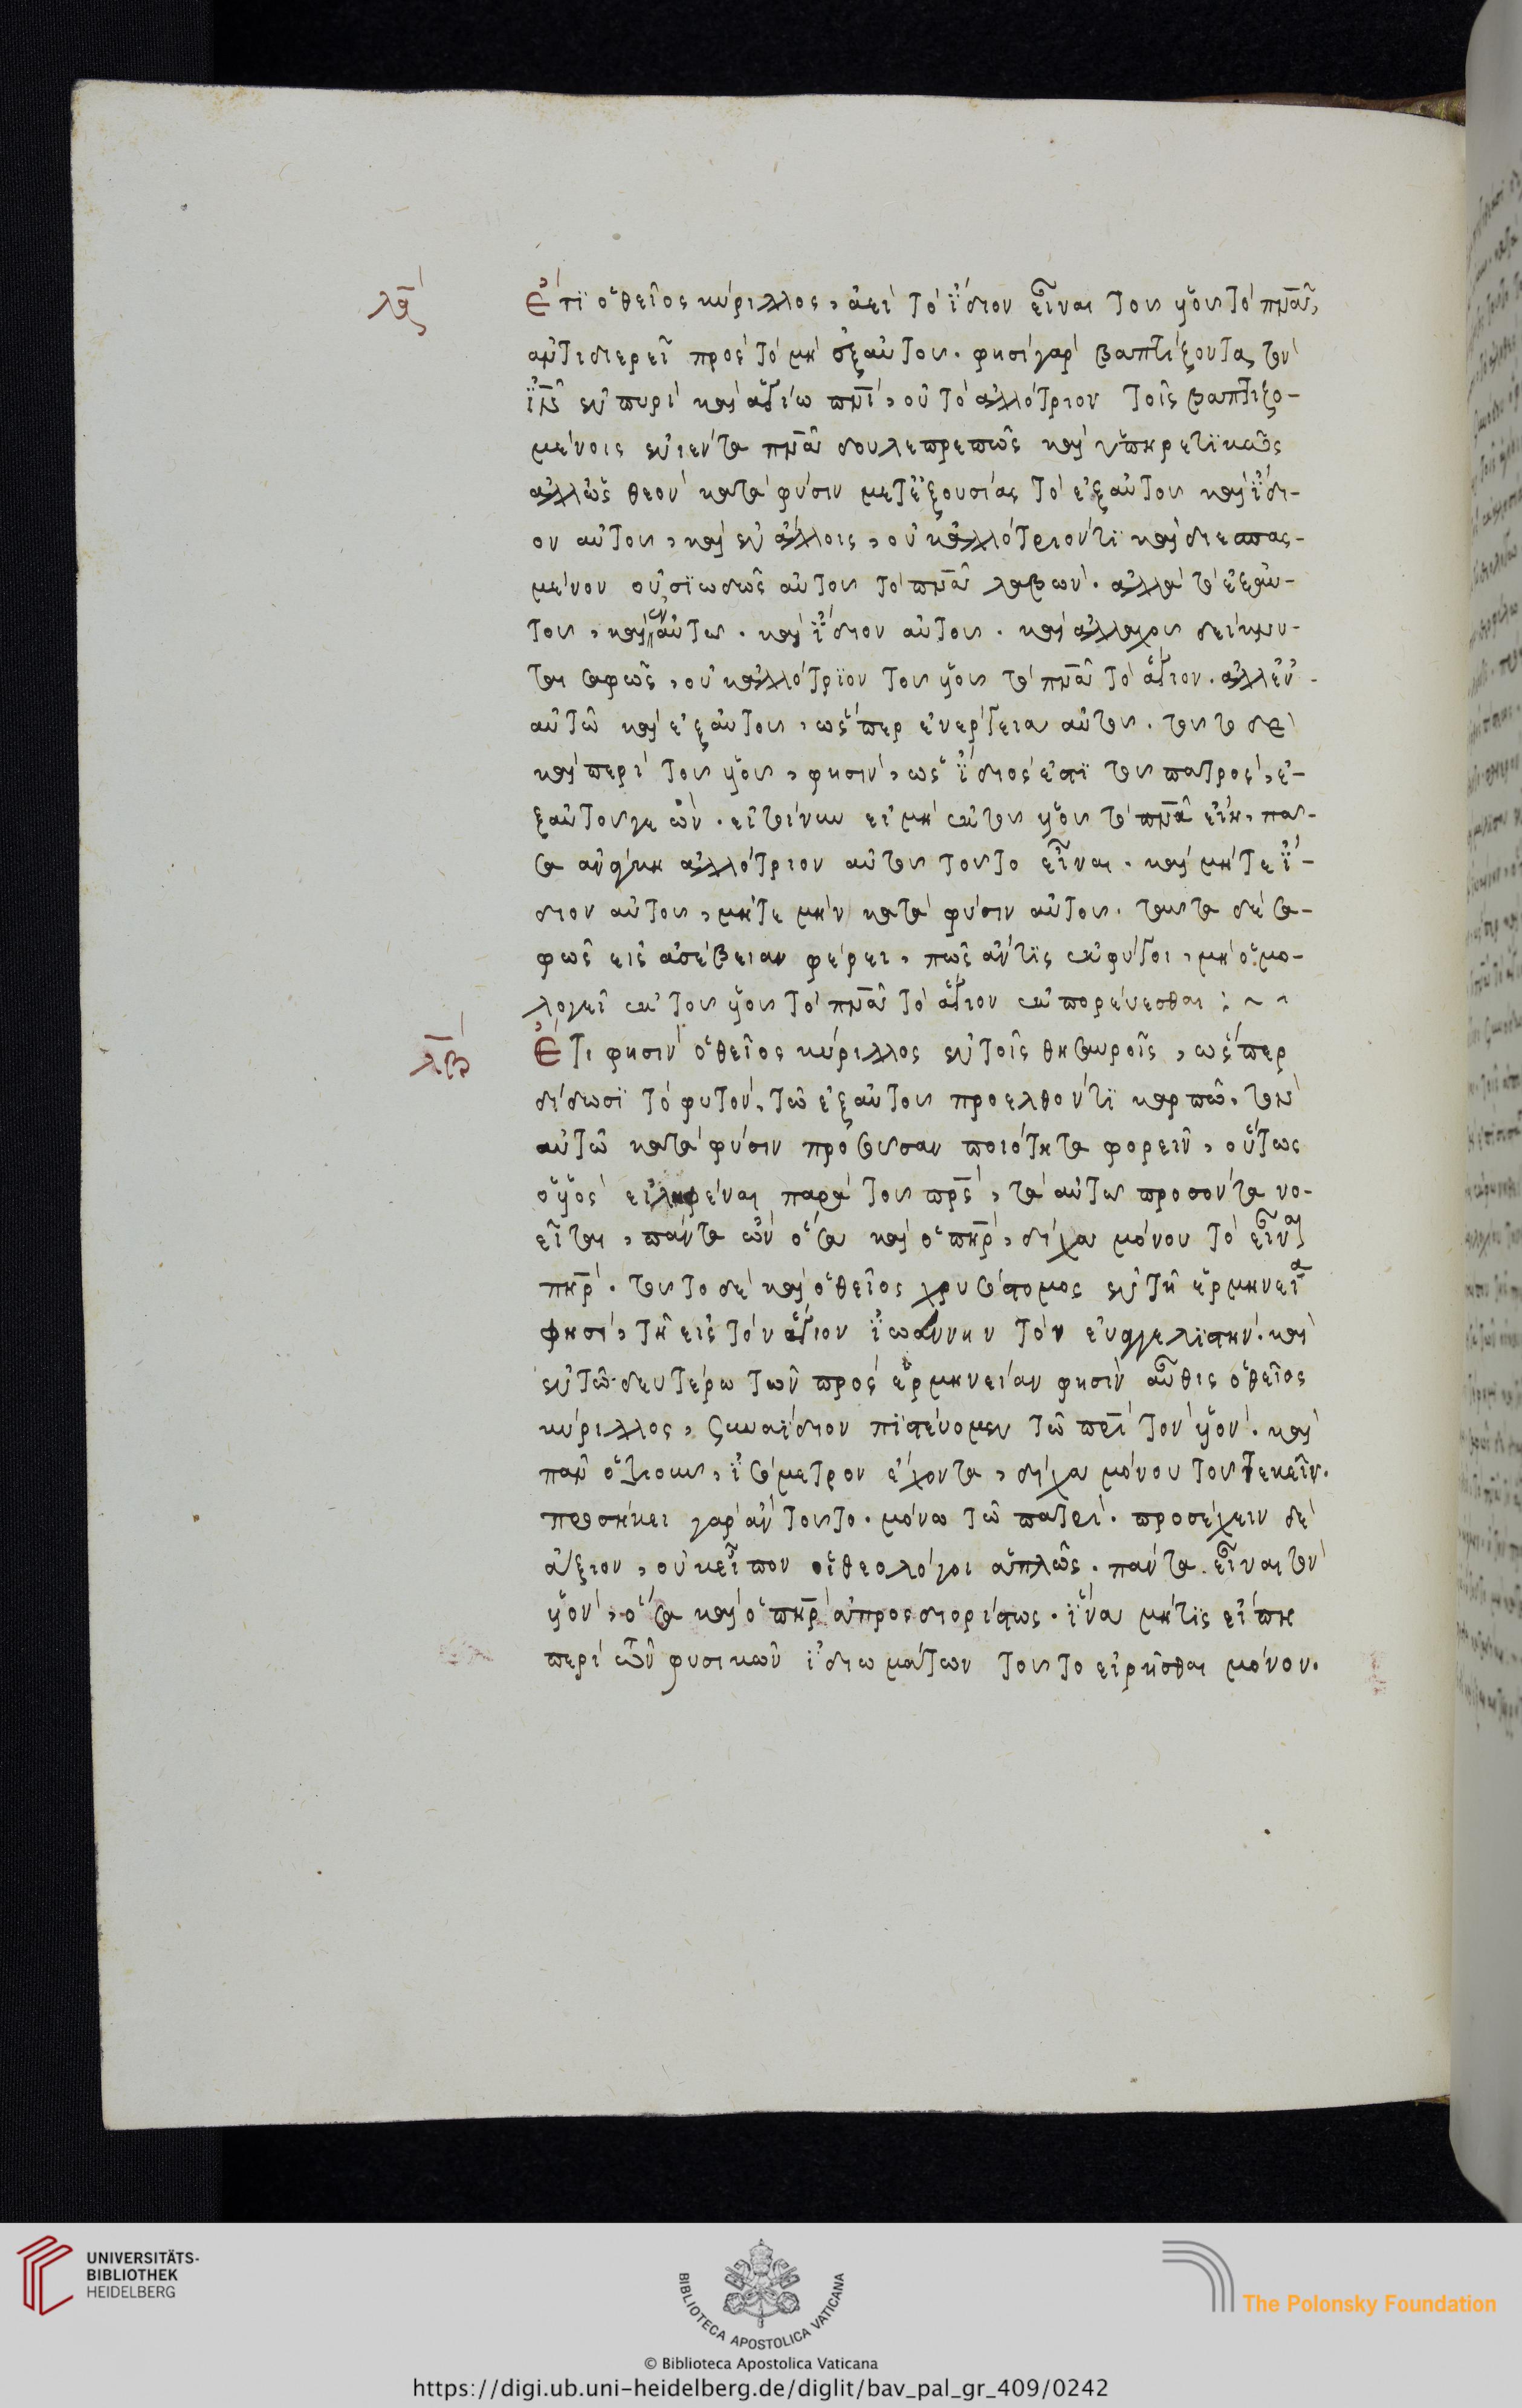 λα
Ἔτι ὁ θεῖος κύριλλος, ἀεὶ τὸ ἴδιον εἶναι τοῦ υἱοῦ τὸ πνα,
ἀντιδιερεῖ πρὸς τὸ μὴ ἐξ αὐτοῦ. φησὶ γὰρ βαπτίζοντα τὸν
ιν ἐν πυρὶ καὶ ἁγίω πνι, οὐ τὸ ἀλλότριον τοῖς βαπτιζο-
μένοις ἐνιέντα πνα δουλοπρεπῶς καὶ ὑπηρετικῶς
ἀλλ' ὡς θεὸν κατὰ φύσιν μετ' ἐξουσίας τὸ ἐξ αὐτοῦ καὶ ἴδι-
ον αὐτοῦ, καὶ ἐν ἄλλοις, οὐκ ἀλλότριόν τι καὶ διεσπας-
μένον οὐσιωδῶς αὐτοῦ τὸ πνα λαβών. ἀλλὰ τὸ ἐξ αὐ-
τοῦ, καὶ ἐν αὐτῶ. καὶ ἴδιον αὐτοῦ. καὶ ἀλλαχοῦ δείκνυ-
ται σαφῶς, οὐκ ἀλλότριον τοῦ υἱοῦ τὸ πνα τὸ ἅγιον. ἀλλ' ἐν
αὐτῶ καὶ ἐξ αὐτοῦ, ὥσπερ ἐνέργεια αὐτοῦ. τοῦτο δὲ
καὶ περὶ τοῦ υἱοῦ, φησὶν, ὡς ἴδιός ἐστι τοῦ πατρὸς, ἐ-
ξ αὐτοῦ γε ὤν. εἰ τοίνυν εἰ μὴ ἐκ τοῦ υἱοῦ τὸ πνα εἴη, παν-
τα ἀνάγκη ἀλλότριον αὐτοῦ τοῦτο εἶναι. καὶ μήτε ἴ-
διον αὐτοῦ, μήτε μὴν κατὰ φύσιν αὐτοῦ. ταῦτα δὲ σα-
φῶς εἰς ἀσέβειαν φέρει, πῶς ἄν τις ἐκφύγοι, μὴ ὁμο-
λογεῖ ἐκ τοῦ υἱοῦ τὸ πνα τὸ ἅγιον ἐκπορεύεσθαι : ~ ~
λβ
Ἔτι φησὶν ὁ θεῖος κύριλλος ἐν τοῖς θησαυροῖς, ὥσπερ
δίδωσι τὸ φυτὸν, τῶ ἐξ αὐτοῦ προελθόντι καρπῶ, τὴν
αὐτῶ κατὰ φύσιν προσοῦσαν ποιότητα φορεῖν, οὕτως
ὁ υἱὸς εἰληφέναι παρὰ τοῦ πρς, τὰ αὐτῶ προσόντα νο-
εῖται, πάντα ὢν ὅσα καὶ ὁ πηρ, δίχα μόνου τὸ εἶναι
πηρ. τοῦτο δὲ καὶ ὁ θεῖος χρυσόστομος ἐν τῆ ἑρμηνεία
φησὶ, τῆ εἰς τὸν ἅγιον ἰωάννην τὸν εὐαγγελιστήν. καὶ
ἐν τῶ δευτέρω τῶν πρὸς ἑρμηνείαν φησὶν αὖθις ὁ θεῖος
κύριλλος, συναΐδιον πιστεύομεν τῶ πρι τὸν υἱόν. καὶ
πᾶν ὁτιοῦν, ἰσόμετρον ἔχοντα, δίχα μόνου τοῦ τεκεῖν.
προσήκει γὰρ ἂν τοῦτο. μόνω τῶ πατρί. προσέχειν δὲ
ἄξιον, οὐκ εἶπον οἱ θεολόγοι ἁπλῶς. πάντα εἶναι τὸν
υἱὸν, ὅσα καὶ ὁ πηρ ἀπροσδιορίστως. ἵνα μή τις εἴπη
περὶ ὧν φυσικῶν ἰδιωμάτων τοῦτο εἰρῆσθαι μόνον.
UNIVERSITÄTS-
BIBLIOTHEK
HEIDELBERG
BIBLIOTECA APOSTOLICA VATICANA
The Polonsky Foundation
© Biblioteca Apostolica Vaticana
https://digi.ub.uni-heidelberg.de/diglit/bav_pal_gr_409/0242